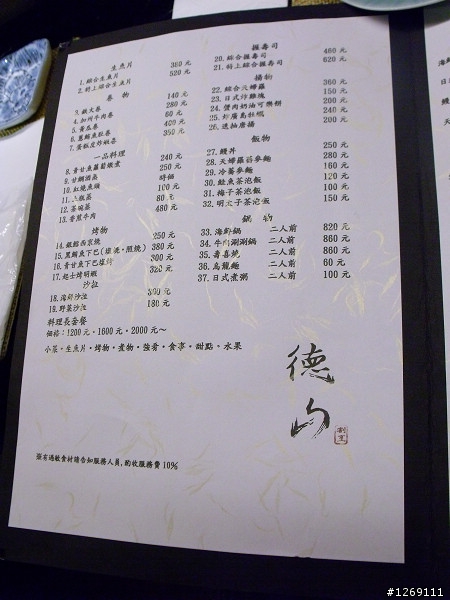 生魚片
1. 綜合生魚片 360 元
2. 特上綜合生魚片 520 元
卷 物
3. 鐵火卷 140 元
4. 加州手卷 280 元
5. 黃瓜卷 60 元
7. 蛋飯皮炸蝦卷
一品料理
8. 青甘魚蘿蔔燉煮 250 元
9. 甘鯛酒蒸 時價
10. 紅燒魚頭 100 元
11. 六瓶蒸 80 元
12. 茶碗蒸 480 元
13. 香煎牛肉
烤物
14. 銀鱈西京燒 250 元
15. 黑鯛魚下巴(塩洗・照燒) 380 元
16. 青甘魚下巴塩烤 300 元
17. 起士烤明蝦 320 元
沙拉
18. 海鮮沙拉 300 元
19. 野菜沙拉 180 元
料理長套餐
價格：1200 元・1600 元・2000 元～
小菜・生魚片・烤物・煮物・強肴・食事・甜點・水果
握壽司
20. 綜合握壽司 460 元
21. 特上綜合握壽司 620 元
揚物
22. 綜合天婦羅 360 元
23. 日式炸雞塊 150 元
24. 蟹肉奶油可樂餅 200 元
25. 炒廣島牡蠣 240 元
26. 透抽唐揚 200 元
飯物
27. 鰻丼 250 元
28. 天婦羅蕎麥麵 280 元
29. 冷蕎麥麵 160 元
30. 鮭魚茶泡飯 120 元
31. 梅子茶泡飯 100 元
32. 明太子茶泡飯 150 元
鍋 物
33. 海鮮鍋 二人前 820 元
34. 牛肉涮涮鍋 二人前 860 元
35. 壽喜燒 二人前 860 元
36. 烏龍麵 二人前 60 元
37. 日式煮粥 二人前 100 元
德山
割烹
※有過敏食材請告知服務人員,酌收服務費 10%
#1269111